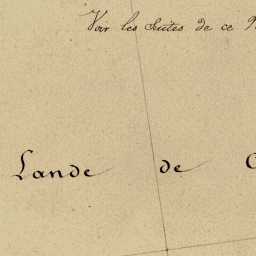 Voir les suites de ce
Lande de